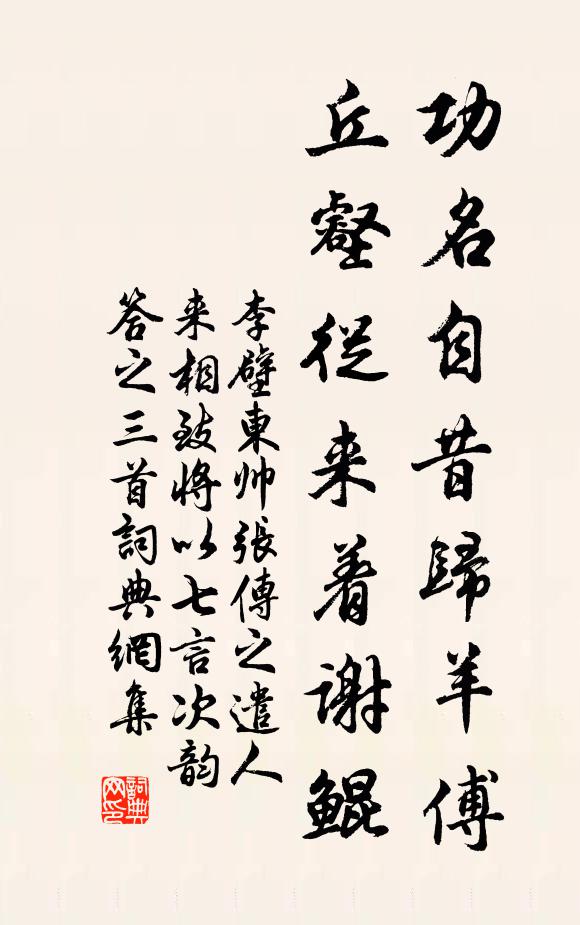 功名自昔歸羊傅
丘壑從来着謝鯤
李壁東帅張傅之遣人
来相致將以七言次韵
答之三首詞典網集
詞典网印